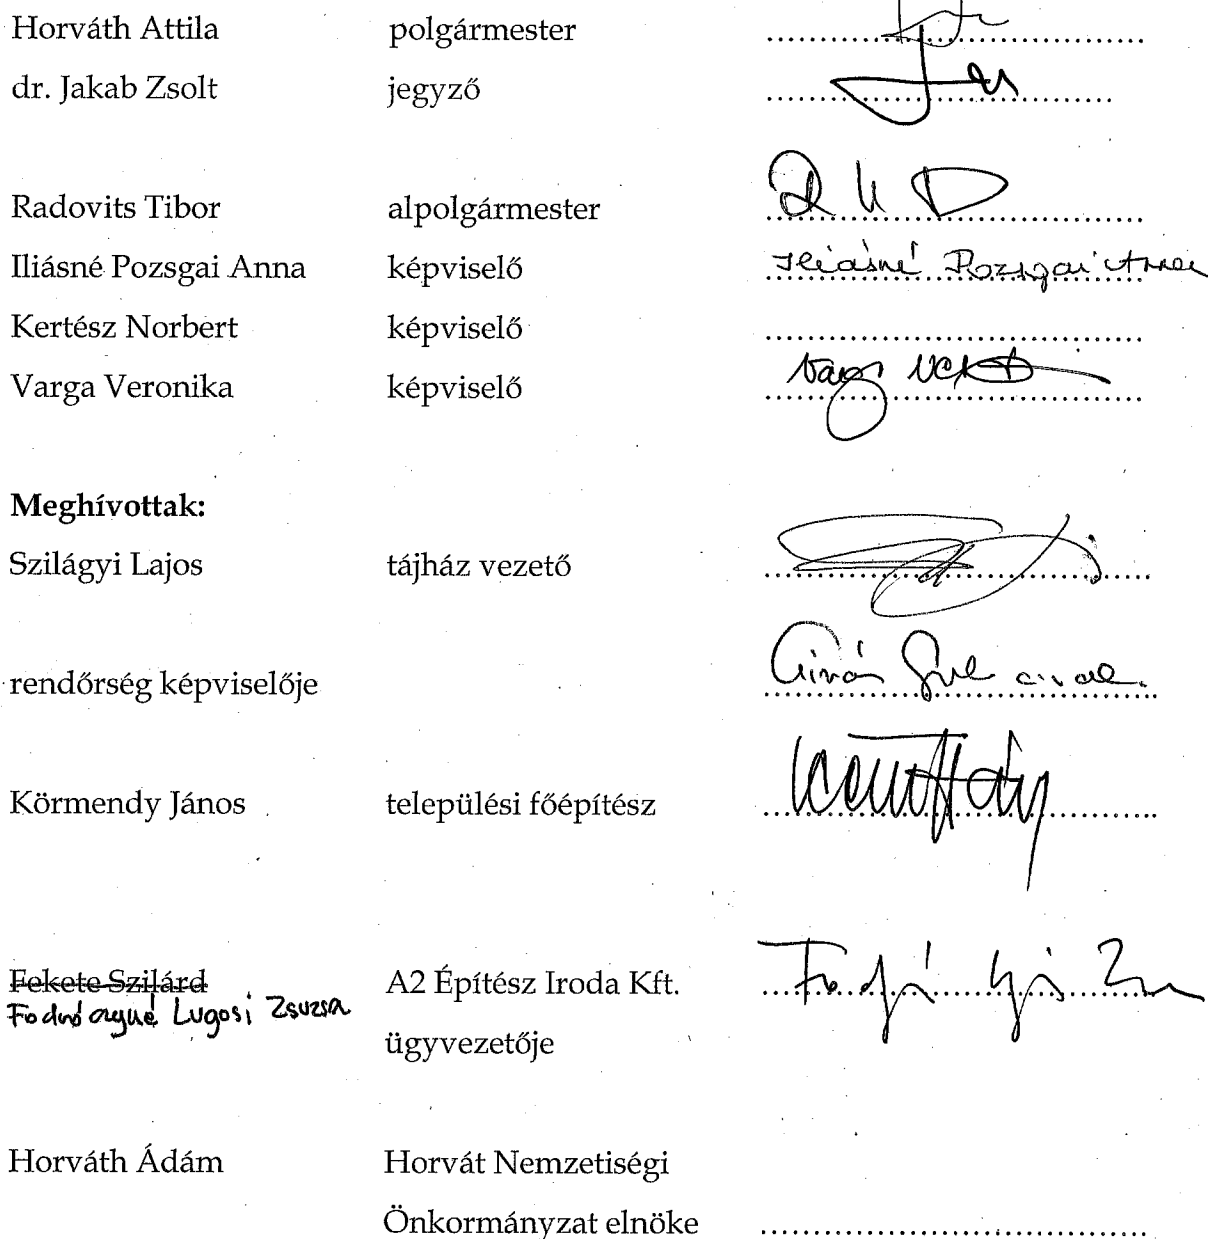 Horváth Attila polgármester ........................................
dr. Jakab Zsolt jegyző ........................................
Radovits Tibor alpolgármester ........................................
Iliásné Pozsgai Anna képviselő Iliásné Pozsgai Anna
Kertész Norbert képviselő ........................................
Varga Veronika képviselő ........................................
Meghívottak:
Szilágyi Lajos tájház vezető ........................................
rendőrség képviselője ........................................
Körmendy János települési főépítész ........................................
Fekete Szilárd A2 Építész Iroda Kft. ........................................
Lugosi Zsuzsa
ügyvezetője
Horváth Ádám Horvát Nemzetiségi
Önkormányzat elnöke ........................................